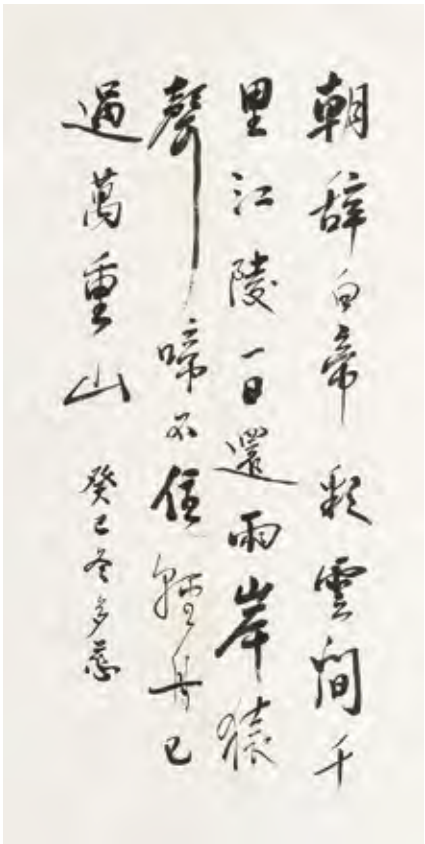 朝辞白帝彩雲間千
里江陵一日還兩岸猿
聲啼不住輕舟已
過萬重山 癸巳冬多慈